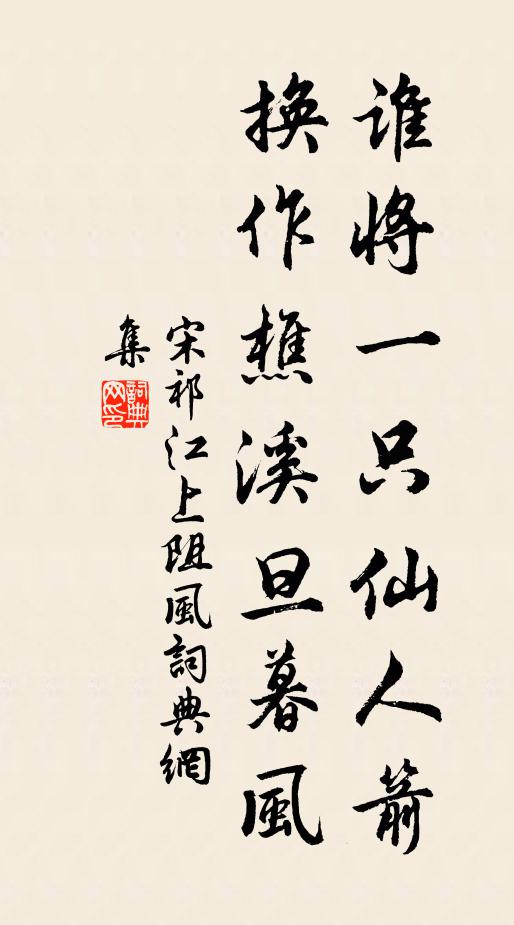 谁将一只仙人箭
换作樵溪旦暮風
宋祁江上阻風詞典網
集
詞典
网印